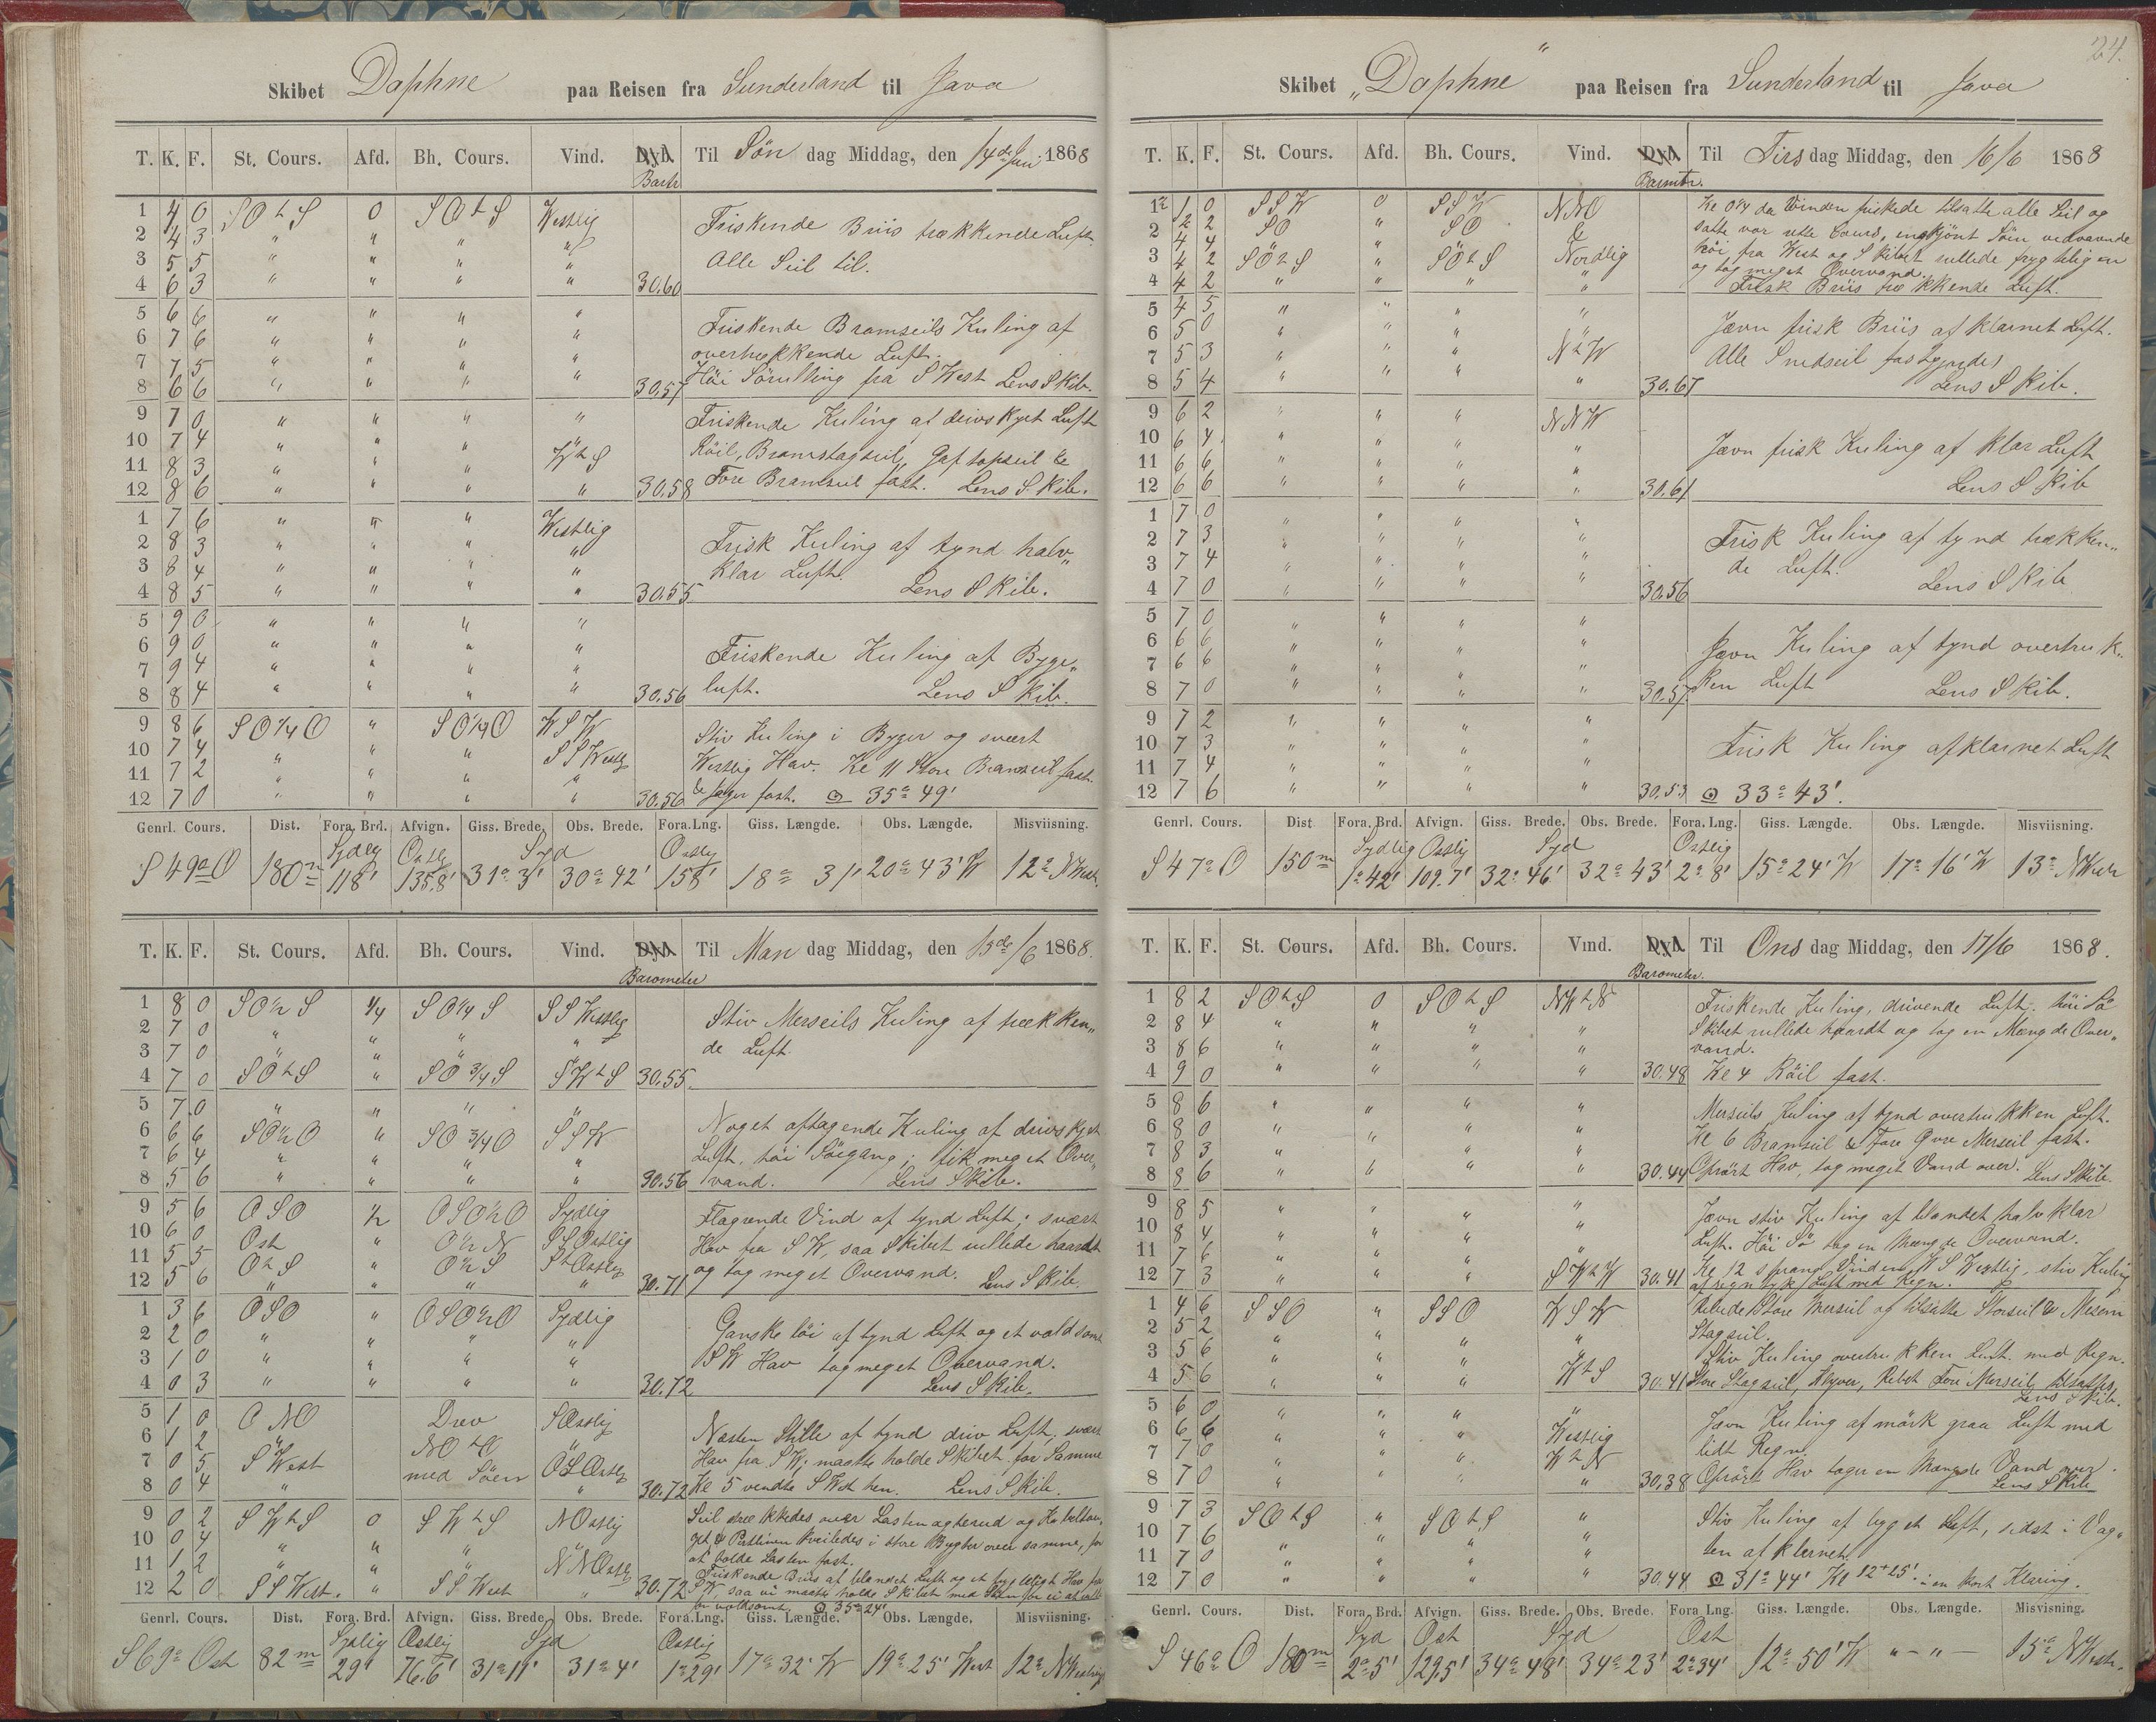 Skibet Daphne paa Reisen fra Sunderland til Java
T. K. F. St. Cours. Afd. Bh. Cours. Vind. Dyb. Til Søn dag Middag, den 14de Juni 1868
Baro
1 4 0 SOtS 0 SOtS Westlig Friskende Briis trækkende Luft
2 4 3 " " " " Alle Seil til.
3 5 5 " " " "
4 6 3 " " " " 30.60
5 6 6 " " " " Friskende Bramseils Kuling af
6 7 6 " " " " overtrækkende Luft.
7 7 5 " " " " Høi Sørulling fra S West Lens Skib.
8 6 6 " " " " 30.57
9 7 0 " " " " Friskende Kuling af drivskyet Luft
10 7 4 " " " " Röil, Bramstagseil, Gaftopseil &
11 8 3 " " " WtS Fore Bramseil fast. Lens Skib.
12 8 6 " " " " 30.58
1 7 6 " " " Westlig Frisk Kuling af tynd halv„
2 8 3 " " " " klar Luft.
3 8 4 " " " " Lens Skib.
4 8 5 " " " " 30.55
5 9 0 " " " " Friskende Kuling af Byge„
6 9 0 " " " " luft. Lens Skib.
7 9 4 " " " "
8 8 4 " " " " 30.56
9 8 6 SO1/4O " SO1/4O WSW Stiv Kuling i Byger og svært
10 7 4 " " " SSWestlig Westlig Hav. Kl 11 Store Bramseil fast.
11 7 2 " " " "
12 7 0 " " " " 30.56 & Jager fast. ⊙ 35° 49'
Genrl. Cours. Dist. Fora. Brd. Afvign. Giss. Brede. Obs. Brede. Fora.Lng. Giss. Længde. Obs. Længde. Misviisning.
Sydlig Ostlig Syd Ostlig
S 49° O 180m 118' 135.8' 31° 3' 30° 42' 158' 18° 31' 20° 43' W 12° NWest.
T. K. F. St. Cours. Afd. Bh. Cours. Vind. Dyb. Til Man dag Middag, den 15de/6 1868.
Barometer
1 8 0 SO1/2S 1/4 SO1/4S SSWestlig Stiv Merseils Kuling af trækken„
2 7 0 " " " " de Luft.
3 7 0 " " " "
4 7 0 SOtS " SO3/4S SWtS 30.55
5 7 0 " " " " Noget aftagende Kuling af drivskyet
6 6 6 SO1/2O " SO3/4O SSW Luft, høi Søegang; fik meget Over„
7 6 4 " " " " vand. Lens Skib.
8 5 6 " " " " 30.56
9 5 6 OSO 1/2 OSO1/2O Sydlig Flagrende Vind af tynd Luft; svært
10 6 0 Ost " O1/2N SSOstlig Hav fra SW, saa Skibet rullede haardt
11 5 5 OtS " O1/2S StOstlig og tog meget Overvand. Lens Skib.
12 5 6 " " " " 30.71
1 3 6 OSO " OSO1/2O Sydlig Ganske løi af tynd Luft og et voldsomt
2 2 0 " " " " SW Hav tog meget Overvand.
3 1 0 " " " " Lens Skib.
4 0 3 " " " " 30.72
5 1 0 ONO Drev SOstlig Næsten Stille af tynd driv Luft; svært
6 1 2 " NOtO " Hav fra SW; maatte holde Skibet for Samme
7 0 5 SWest med Söen OSOstlig Kl 5 vendte SWest hen. Lens Skib.
8 0 4 " " 30.72
9 0 2 SWtS 0 SWtS NOstlig Seil strækkedes over Lasten agterud og Kabeltou„
10 0 4 " " " " get & Pertlinen kveiledes i store Bugter over samme, for
11 1 2 " " " NNOstlig at holde Lasten fast.
12 2 0 SSWest. " SSWest " 30.72 Friskende Briis af blandet Luft og et frygteligt Hav fra
SW saa vi maatte holde Skibet med Söen for ei at rulle
for voldsomt. ⊙ 35° 24'
Genrl. Cours. Dist. Forg. Brd. Afvign. Giss. Brede. Obs. Brede. Fora.Lng. Giss. Længde. Obs. Længde. Misviisning.
Sydlig Østlig Syd Østlig
S 69° Ost 82m 29' 76.6' 31° 11' 31° 4' 1° 29' 17° 32' W 19° 25' West 12° NWestlig
24.
Skibet „Daphne" paa Reisen fra Sunderland til Java
T. K. F. St. Cours. Afd. Bh. Cours. Vind. Dyb. Til Tirs dag Middag, den 16/6 1868
Baromtr.
1 1 0 SSW 0 SSW NNO Kl 0 1/4 da Vinden friskede tilsatte alle Seil og
2 2 2 SO " SO & satte vor rette Cours, engskjönt Söin vedvarende
3 4 2 SÖtS " SÖtS Nordlig höi fra West og Skibet rullede frygteligen
og tog meget Overvand.
4 4 2 " " " " Frisk Briis trækkende Luft.
5 4 5 " " " " Jævn frisk Briis af klarnet Luft.
6 5 0 " " " " Alle Smedseil fastgjordes
7 5 3 " " " NtW Lens Skib.
8 5 4 " " " " 30.67
9 6 2 " " " NNW Jævn frisk Kuling af klar Luft
10 6 4 " " " "
11 6 6 " " " " Lens Skib
12 6 6 " " " " 30.61
1 7 0 " " " " Frisk Kuling af tynd trækken„
2 7 3 " " " " de Luft.
3 7 4 " " " " Lens Skib
4 7 0 " " " " 30.56
5 7 0 " " " " Jævn Kuling af tynd overtruk„
6 6 6 " " " " ken Luft Lens Skib.
7 6 6 " " " "
8 7 0 " " " " 30.57
9 7 2 " " " " Frisk Kuling afklarnet Luft
10 7 3 " " " "
11 7 4 " " " "
12 7 6 " " " " 30.53 ⊙ 33° 43'.
Genrl. Cours. Dist Fora. Brd. Afvign. Giss. Brede. Obs. Brede. Fora. Lng. Giss. Længde. Obs. Længde. Misviisning.
Sydlig Ostlig Syd Ostlig
S 47° O 150m 1° 42' 109.7' 32° 46' 32° 43' 2° 8' 15° 24' W 17° 16' W 13° NWestr
T. K. F. St. Cours. Afd. Bh. Cours. Vind. Dyb. Til Ons dag Middag, den 17/6 1868.
Barometer.
1 8 2 SOtS 0 SOtS NWtN Friskende Kuling, drivende Luft; höi Sö
2 8 4 " " " " Skibet rullede haardt og tog en Mængde Over„
3 8 6 " " " " vand.
4 9 0 " " " " 30.48 Kl 4 Röil fast.
5 8 6 " " " " Merseils Kuling af tynd overtrukken Luft.
6 8 0 " " " " Kl 6 Bramseil & Fore Övre Merseil fast.
7 8 3 " " " " Oprört Hav, tog meget Vand over. Lens Skib.
8 8 6 " " " " 30.44
9 8 5 " " " " Jævn stiv Kuling af blandet halvklar
10 8 4 " " " " Luft. Höi Sö tog en Mængde Overvand.
11 7 6 " " " " Kl 12 sprang Vinden WSWestlig, stiv Kuling
12 7 3 " " " SWtW 30.41 af regntyk Luft med Regn.
1 4 6 SSO " SSO WSW Rebede Store Merseil og tilsatte Storseil & Mesam
2 5 2 " " " " Stagseil.
3 5 6 " " " " Stiv Kuling overtrukken Luft med Regn.
4 5 6 " " " WtS 30.41 Store Stagseil, Klyver, Rebet Fore Merseil tilsattes
Lens Skib.
5 6 0 " " " " Jævn Kuling af mörk graa Luft med
6 6 6 " " " Westlig lidt Regn
7 7 0 " " " WtN Oprört Hav tager en Mængde Vand over.
8 7 0 " " " " 30.38 Lens Skib
9 7 3 SOtS " SOtS " Stiv Kuling af byget Luft, sidst i Vag„
10 7 6 " " " " ten afklarnet.
11 7 0 " " " "
12 7 0 " " " " 30.44 ⊙ 31° 44' Kl 12+25' i en kort Klaring.
Genrl. Cours. Dist. Fora. Brd. Afvign. Giss. Brede. Obs. Brede. Fora Lng. Giss. Længde. Obs. Længde. Misvisning.
Syd Ost Syd Ost
S 46° O 180m 2° 5' 129.5' 34° 48' 34° 23' 2° 34' 12° 50' W " — " — 15° NWestr.